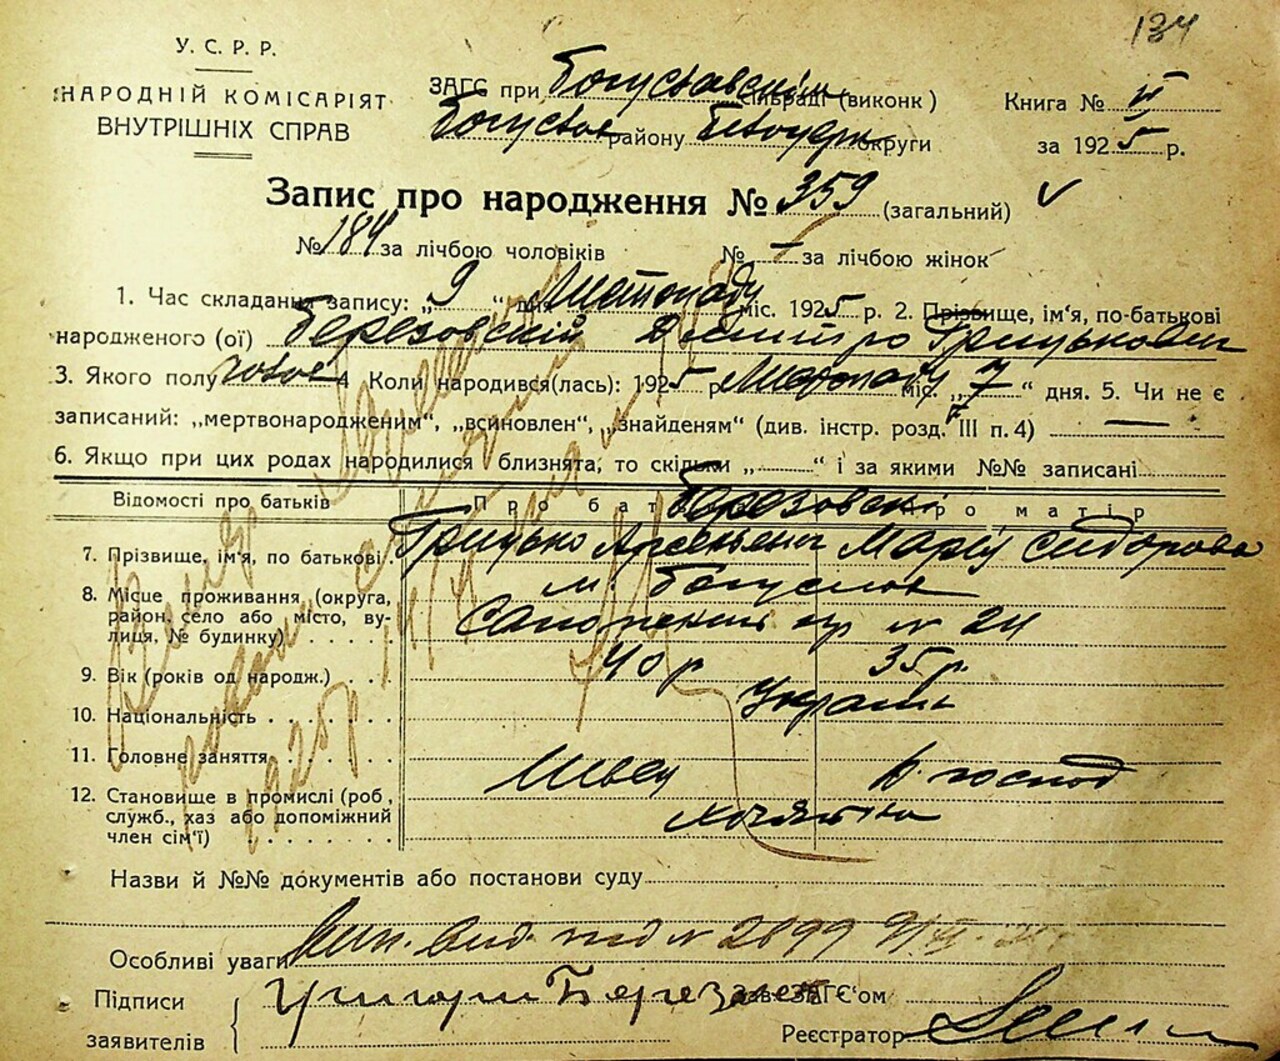 134
У. С. Р. Р.
НАРОДНІЙ КОМІСАРІЯТ
ВНУТРІШНІХ СПРАВ
ЗАГС при Богуславскім сільраді (виконк)
Богуслав району Білоцерк округи
Книга № II
за 1925 р.
Запис про народження № 359 (загальний)
№ 184 за лічбою чоловіків № — за лічбою жінок
1. Час складання запису: „9“ дня Листопаду міс. 1925 р. 2. Прізвище, ім'я, по-батькові
народженого (ої) Березовскій Дмитро Грицькович
3. Якого полу чолов 4 Коли народився(лась): 1925 р Листопаду міс. „7“ дня. 5. Чи не є
записаний: „мертвонародженим“, „всиновлен“, „знайденям“ (див. інстр. розд. III п. 4) —
6. Якщо при цих родах народилися близнята, то скільки „ “ і за якими №№ записані
Відомості про батьків Про бат Про матір
Березовскі
7. Прізвище, ім'я, по батькові. Грицько Арсеньевич Марія Сидорова
8. Місце проживання (округа, м. Богуслав
район, село або місто, ву-
лиця, № будинку) № 24
9. Вік (років од народж.) 40 р 35 р.
10. Національність Українц
11. Головне заняття Швец д. господ
12. Становище в промислі (роб,
служб., хаз або допоміжний
член сім'ї)
Назви й №№ документів або постанови суду
Особливі уваги Вип. вид. под № 2899 9/XI-25
Підписи
заявителів
Григорій Березовск
Зав. ЗАГС'ом
Реєстратор